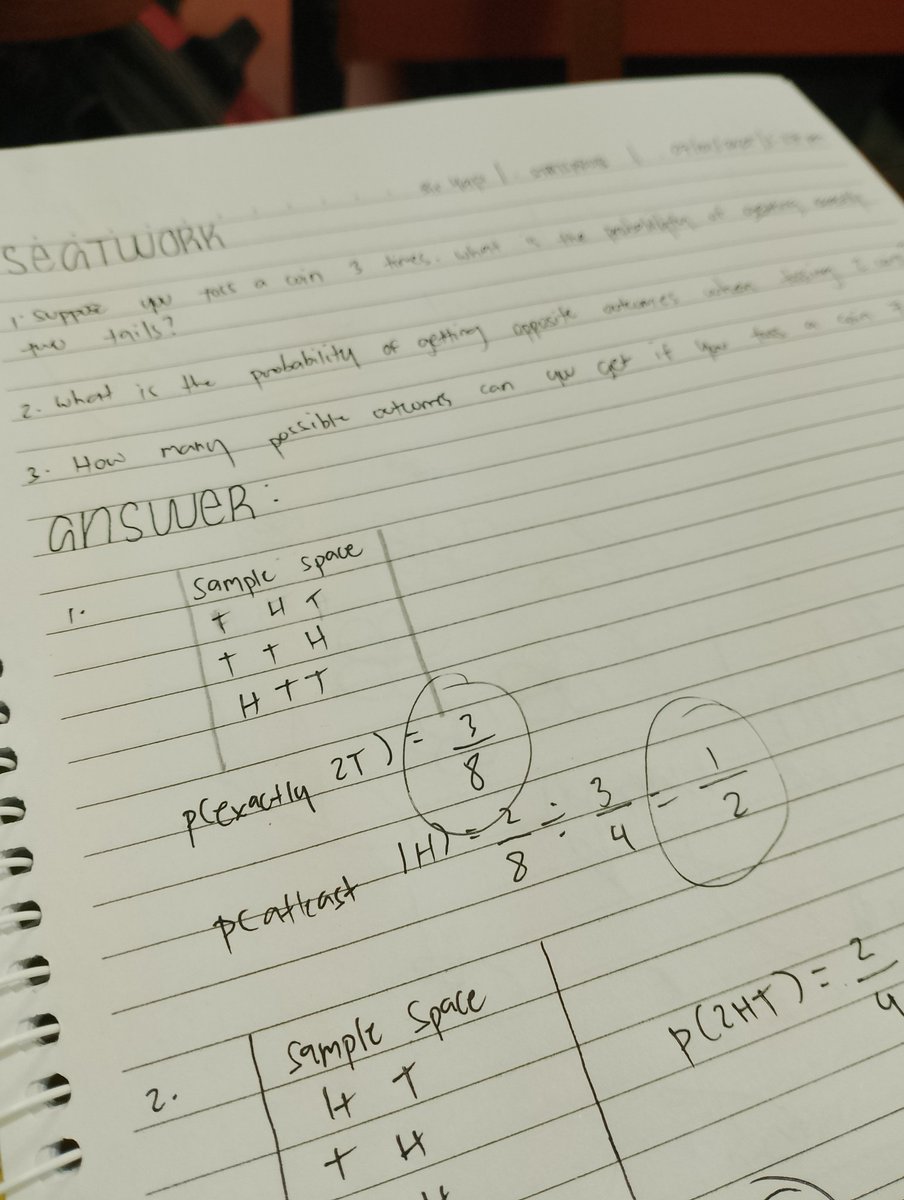 SEATWORK
1. Suppose you toss a coin 3 times. What is the probability of getting exactly
two tails?
2. What is the probability of getting opposite outcomes when tossing
3. How many possible outcomes can you get if you toss a coin
ANSWER:
1.
Sample Space
T H T
T T H
H T T
P(exactly 2T) = 3/8
P(atleast 1H) = 2/8 ÷ 3/4 = 1/2
2.
Sample Space
H T
T H
P(2HT) = 2/4